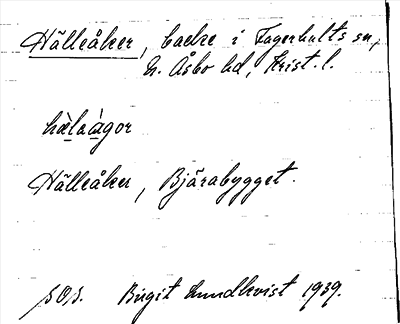 Hälleåker, backe i Fagerhults sn,
N. Åsbo hd, Krist. l.
hälaågor
Hälleåker, Bjärabygget.
sO,s. Birgit Lundkvist 1939.